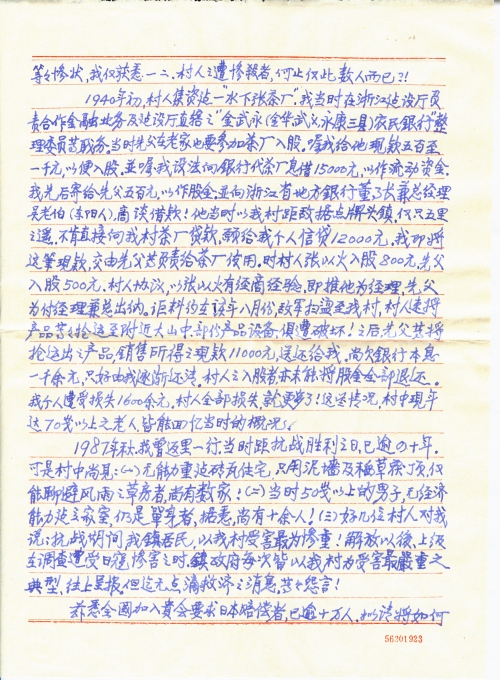 等々惨状，我仅获悉一二。村人之遭惨報者，何止仅此数人而已？！
1940年初，村人集资造一"水下张茶厂"。我当时在浙江建设厅负
责合作金融业务及建设厅直辖之"金武永（金华武义永康三县）农民银行"整
理委员等职务。当时先父在老家也要参加茶厂入股。嘱我给他现款五百至
一千元，以便入股。並嘱我设法向银行代茶厂息借15000元，以作流动资金。
我先后寄给先父五百元，以作股金，並向浙江省地方银行董事长兼总经理
吴老伯（东阳人），商谈借款！他当时以我村距敌据点牌头镇，仅只五里
之遥。不肯直接向我村茶厂贷款，願给我个人信贷12000元，我即将
这筆现款，交由先父等负责给茶厂使用。时村人张以火入股800元，先父
入股500元。村人协议，以张以火有经商经验，即推他为经理，先父
为付经理兼总出纳。讵料约在该年八月份，敌军扫荡至我村，村人速将
产品等々抢运至附近大山中，部份产品设备，俱遭破坏！之后先父等将
抢运出之产品，销售所得之现款11000元，送还给我。尚欠银行本息
一千余元，只好由我逐渐还清。村人之入股者，亦未能将股金全部退还。
我个人遭受损失1600余元，村人全部损失，就更多了！这些情况，村中现年
达70岁以上之老人，皆能回忆当时的概况。
1987年秋，我曾返里一行，当时距抗战胜利之日，已逾四十年。
可是村中尚見：（一）无能力重造砖瓦住宅，只用泥墙及稻草蓋顶，仅
能聊避风雨之草房者，尚有数家！（二）当时50岁以上的男子，无经济
能力造之家室，仍是單身者，据悉，尚有十余人！（三）好几位村人对我
说：抗战期间，我镇居民，以我村受害最为惨重！解放以後，上级
在调查遭受日寇惨害之时，鎮政府每次皆以我村为受害最嚴重之
典型，往上呈报。但迄无点滴救济之消息，等々怨言！
兹悉全國加入贵会要求日本赔偿者，已逾十万人。拟请将如何
56201923